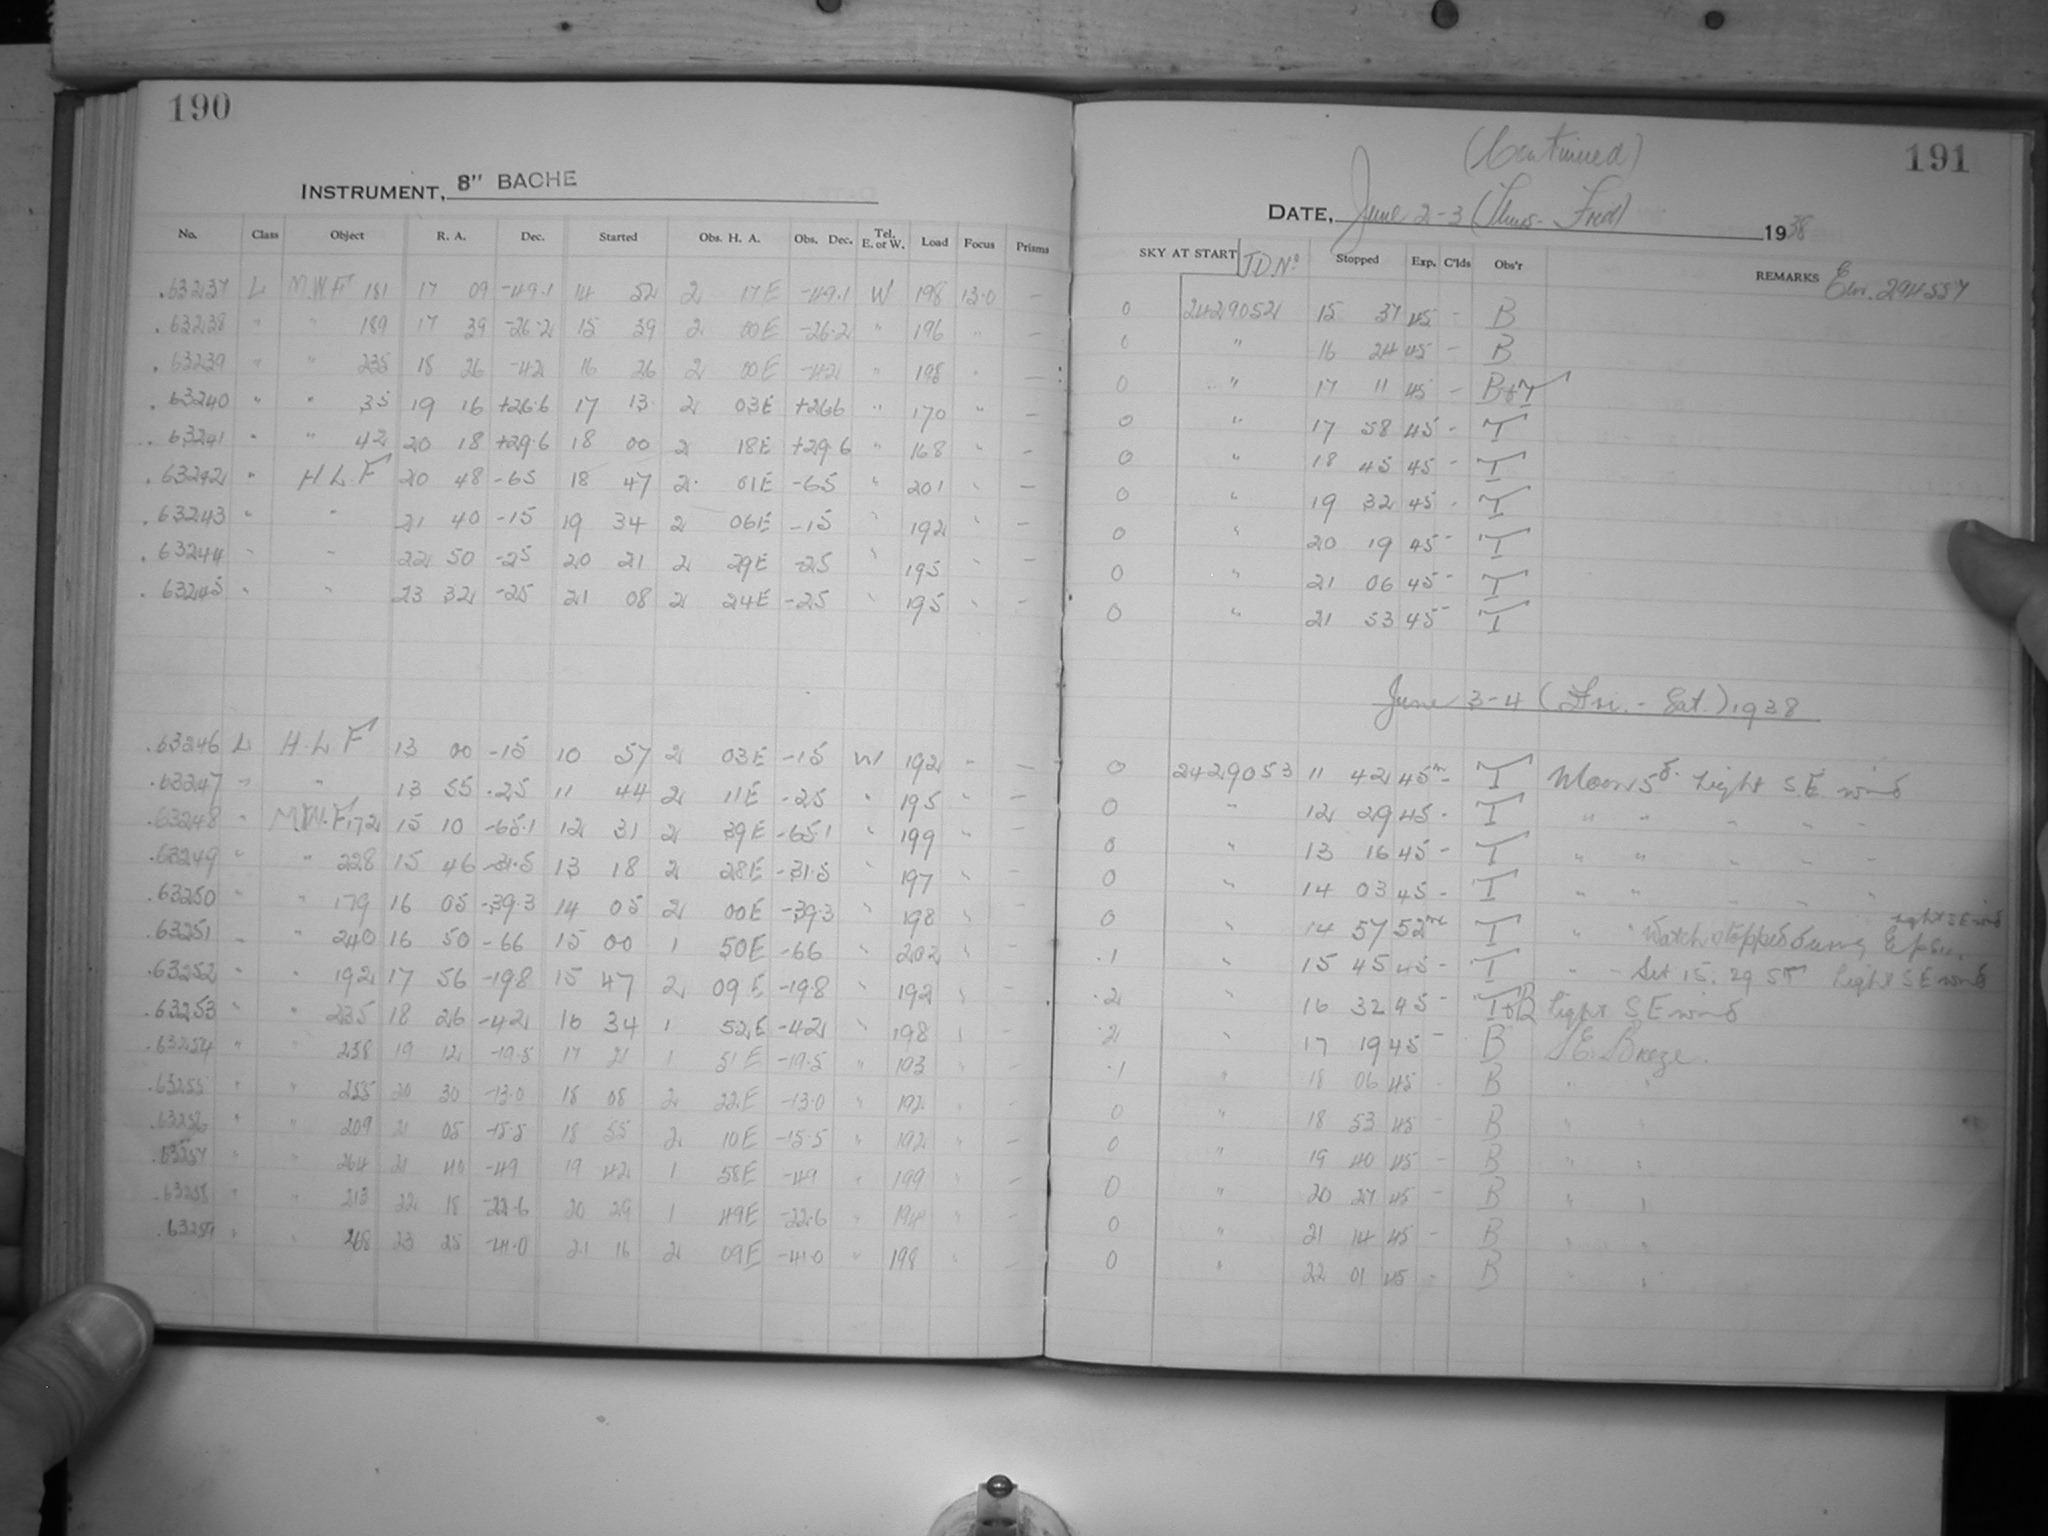 190
INSTRUMENT, 8" BACHE
No. Class Object R. A. Dec. Started Obs. H. A. Obs. Dec. Tel. E. or W. Load Focus Prisms
.63237 L M.W.F 181 17 09 -49.1 14 52 2 17E -49.1 W 198 13.0 —
.63238 " " 189 17 39 -26.2 15 39 2 00E -26.2 " 196 " —
.63239 " " 235 18 26 -42 16 26 2 00E -42 " 198 " —
.63240 " " 35 19 16 +26.6 17 13 2 03E +26.6 " 170 " —
.63241 " " 42 20 18 +29.6 18 00 2 18E +29.6 " 168 " —
.63242 " H.L.F 20 48 -65 18 47 2 01E -65 " 201 " —
.63243 " " 21 40 -15 19 34 2 06E -15 " 192 " —
.63244 " " 22 50 -25 20 21 2 29E -25 " 195 " —
.63245 " " 23 32 -25 21 08 2 24E -25 " 195 " —
.63246 L H.L.F 13 00 -15 10 57 2 03E -15 W 192 " —
.63247 " " 13 55 -25 11 44 2 11E -25 " 195 " —
.63248 " M.W.F. 172 15 10 -65.1 12 31 2 39E -65.1 " 199 " —
.63249 " " 228 15 46 -31.5 13 18 2 28E -31.5 " 197 " —
.63250 " " 179 16 05 -39.3 14 05 2 00E -39.3 " 198 " —
.63251 " " 240 16 50 -66 15 00 1 50E -66 " 202 " —
.63252 " " 192 17 56 -19.8 15 47 2 09E -19.8 " 192 " —
.63253 " " 235 18 26 -42 16 34 1 52E -42 " 198 " —
.63254 " " 238 19 12 -19.5 17 21 1 51E -19.5 " 193 " —
.63255 " " 255 20 30 -13.0 18 08 2 22E -13.0 " 192 " —
.63256 " " 209 21 05 -15.5 18 55 2 10E -15.5 " 192 " —
.63257 " " 264 21 40 -49 19 42 1 58E -49 " 199 " —
.63258 " " 213 22 18 -22.6 20 29 1 49E -22.6 " 194 " —
.63259 " " 268 23 25 -41.0 21 16 2 09E -41.0 " 198 " —
(Continued) 191
DATE, June 2-3 (Thurs- Frid) 1938
SKY AT START J.D.No Stopped Exp. C'lds Obs'r REMARKS
0 2429052 15 37 45 - B
0 " 16 24 45 - B
0 " 17 11 45 - B & T
0 " 17 58 45 - T
0 " 18 45 45 - T
0 " 19 32 45 - T
0 " 20 19 45 - T
0 " 21 06 45 - T
0 " 21 53 45 - T
June 3-4 (Fri. - Sat.) 1938
0 2429053 11 42 45m - T Moon 5d. Light S.E. wind
0 " 12 29 45 - T " " " " "
0 " 13 16 45 - T " " " " "
0 " 14 03 45 - T " " " " "
0 " 14 57 52m T " " Watch stopped during Expsu. light S E wind
.1 " 15 45 45 - T " - Set 15. 29 ST Light S E wind
.2 " 16 32 45 - T & B light S E wind
.2 " 17 19 45 - B S E. Breeze.
.1 " 18 06 45 - B " "
0 " 18 53 45 - B " "
0 " 19 40 45 - B " "
0 " 20 27 45 - B " "
0 " 21 14 45 - B " "
0 " 22 01 45 - B " "